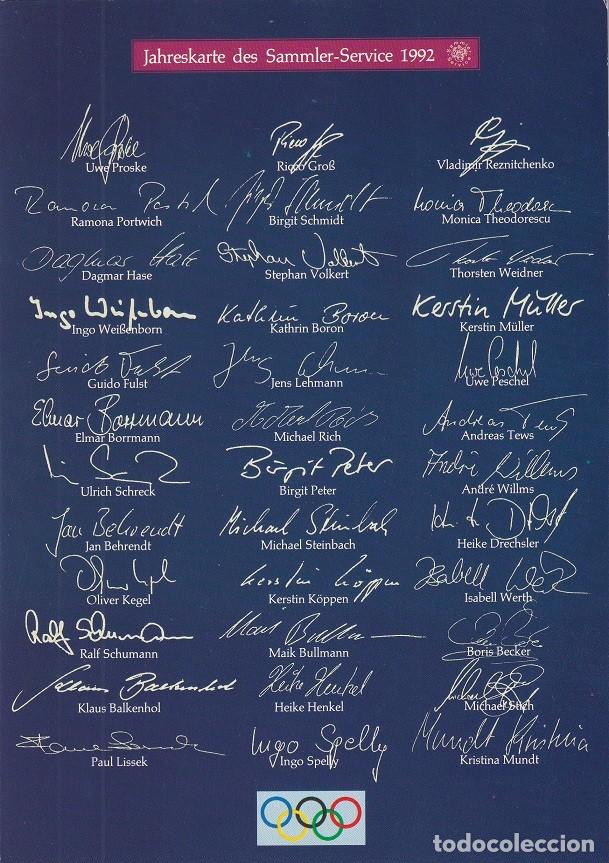 Jahreskarte des Sammler-Service 1992
Uwe Proske Rico Groß Vladimir Reznitchenko
Ramona Portwich Birgit Schmidt Monica Theodorescu
Dagmar Hase Stephan Volkert Thorsten Weidner
Ingo Weißenborn Kathrin Boron Kerstin Müller
Guido Fulst Jens Lehmann Uwe Peschel
Elmar Borrmann Michael Rich Andreas Tews
Ulrich Schreck Birgit Peter André Willms
Jan Behrendt Michael Steinbach Heike Drechsler
Oliver Kegel Kerstin Köppen Isabell Werth
Ralf Schumann Maik Bullmann Boris Becker
Klaus Balkenhol Heike Henkel Michael Stich
Paul Lissek Ingo Spelly Kristina Mundt
todocoleccion